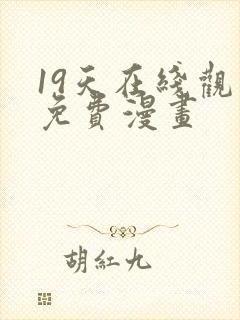 19天在綫觀
免費漫畫
胡紅九